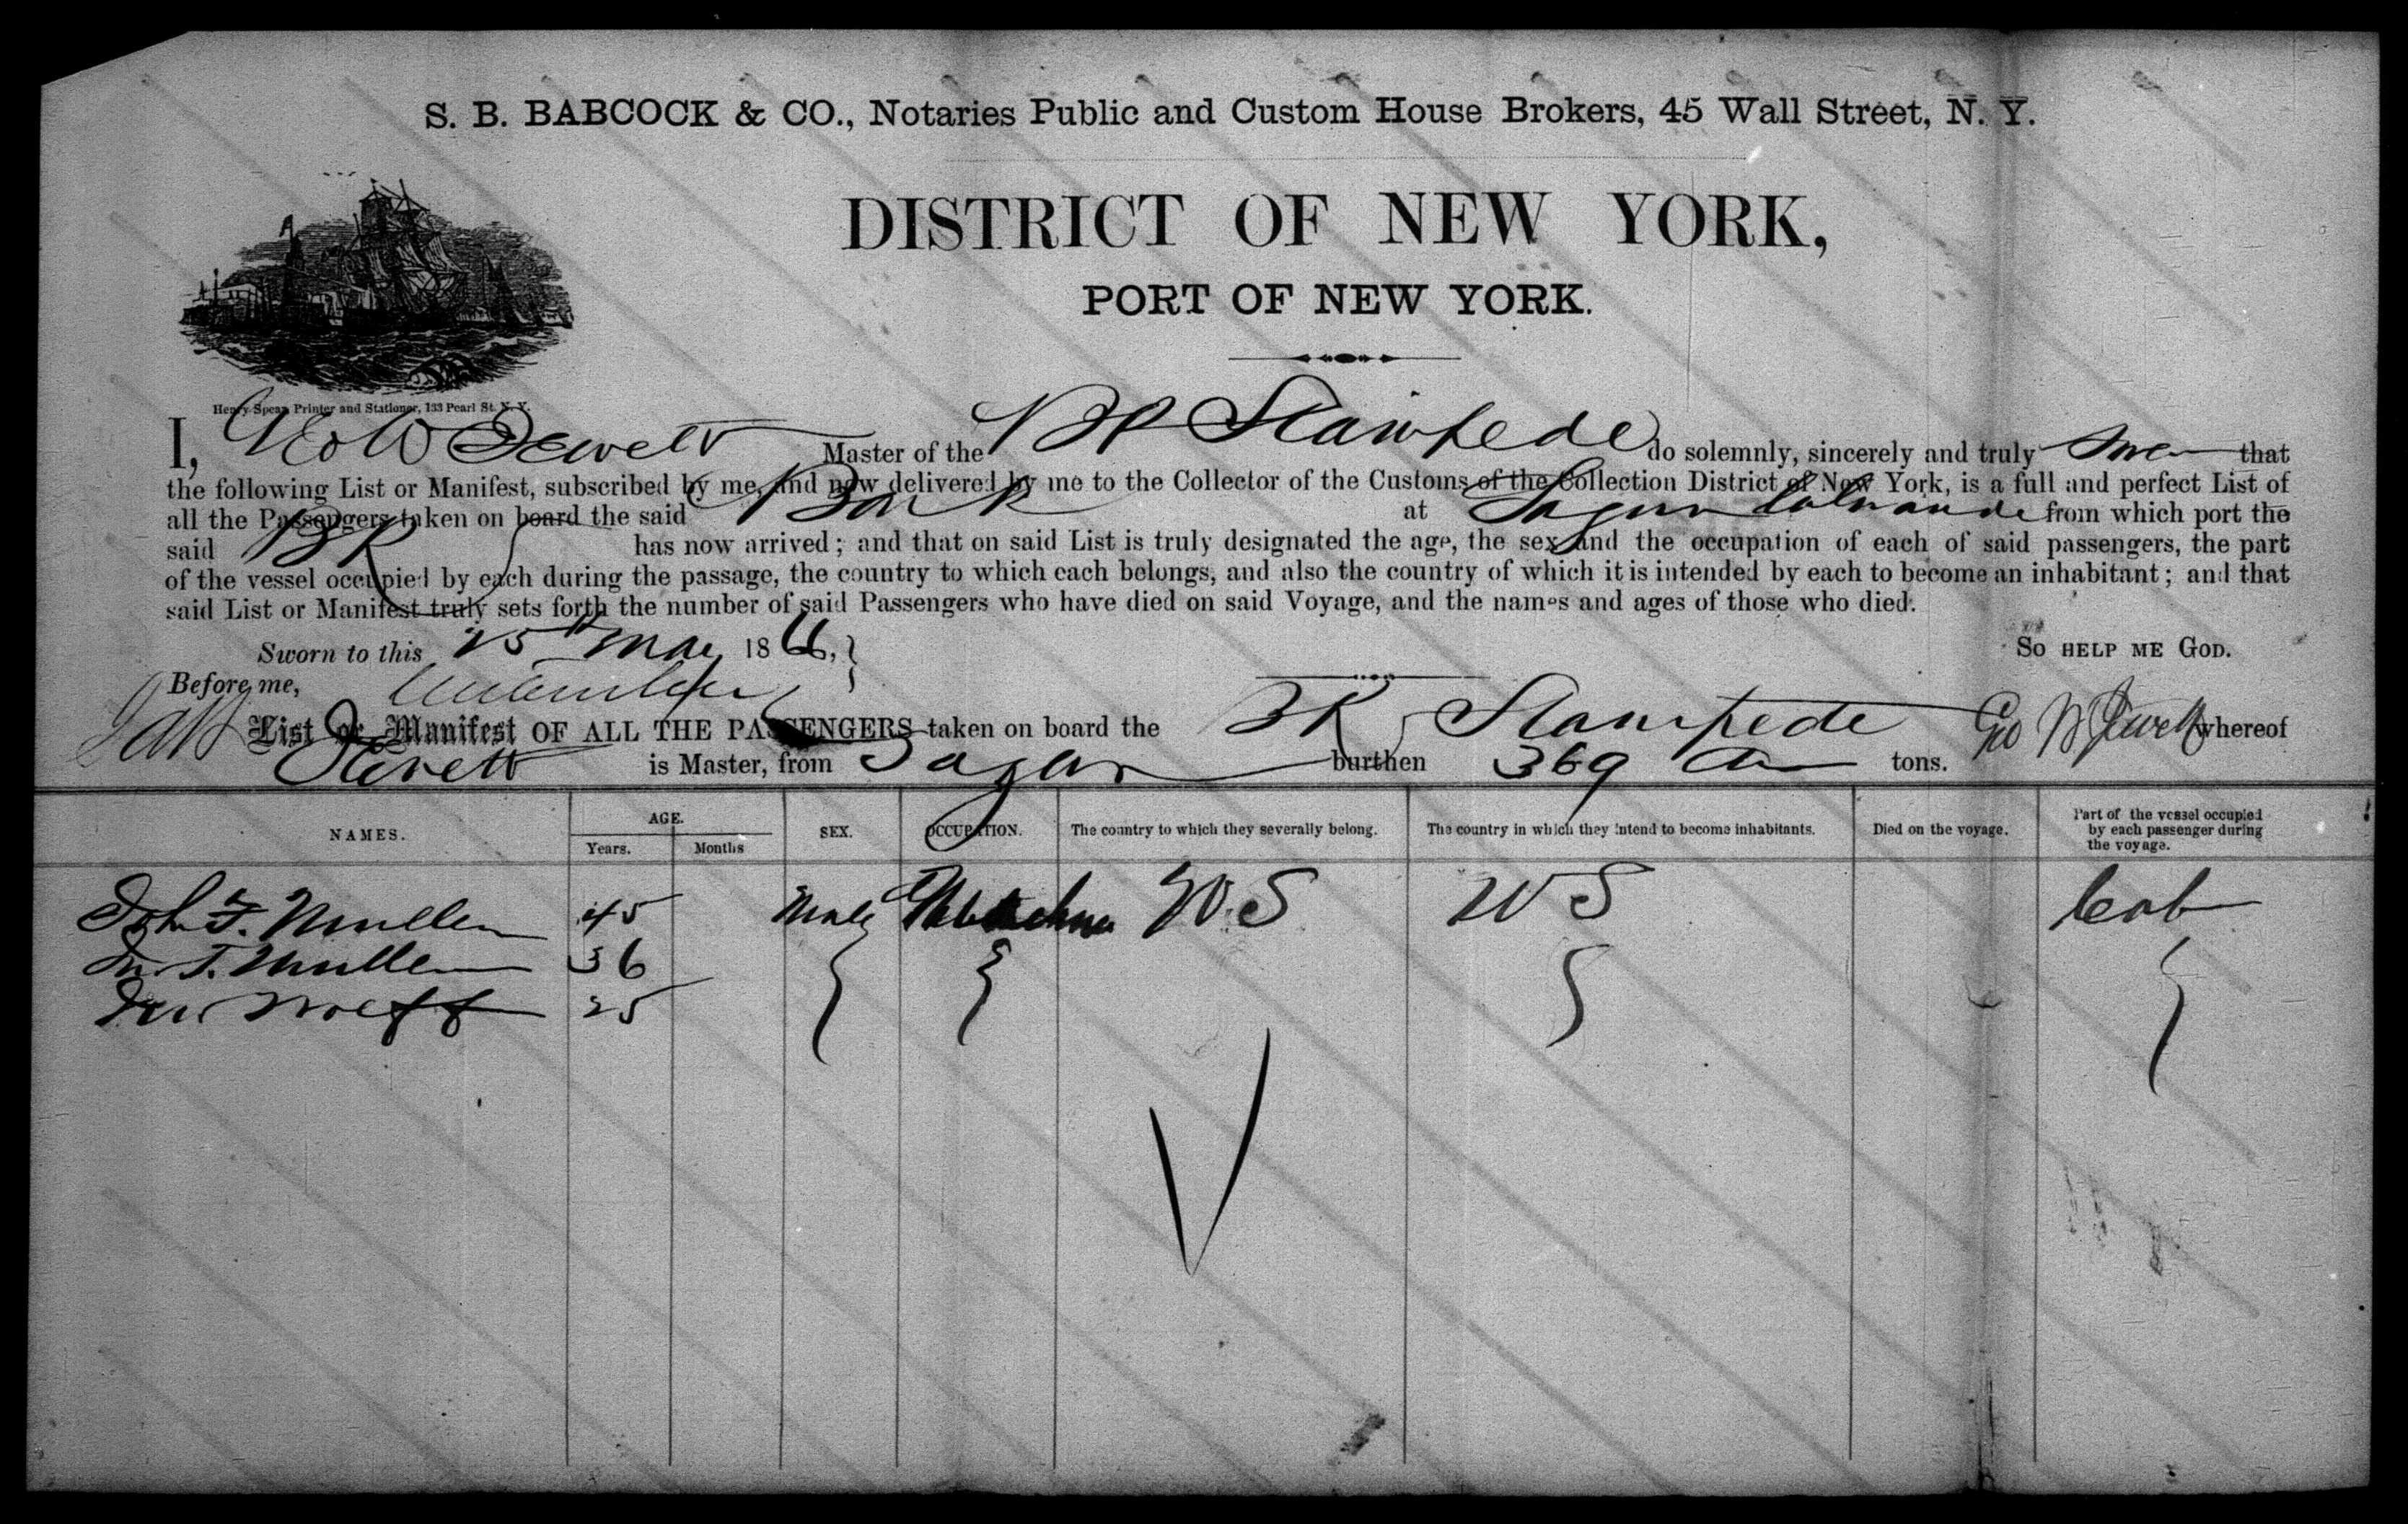 S. B. BABCOCK & CO., Notaries Public and Custom House Brokers, 45 Wall Street, N. Y.
DISTRICT OF NEW YORK,
PORT OF NEW YORK.
Henry Spear, Printer and Stationer, 133 Pearl St. N. Y.
I, Geo W Jewett Master of the BR Stampede do solemnly, sincerely and truly that
the following List or Manifest, subscribed by me, and now delivered by me to the Collector of the Customs of the Collection District of New York, is a full and perfect List of
all the Passengers taken on board the said Bark at Sagua from which port the
said BK has now arrived; and that on said List is truly designated the age, the sex and the occupation of each of said passengers, the part
of the vessel occupied by each during the passage, the country to which each belongs, and also the country of which it is intended by each to become an inhabitant; and that
said List or Manifest truly sets forth the number of said Passengers who have died on said Voyage, and the names and ages of those who died.
Sworn to this 25th May 1866, SO HELP ME GOD.
Before me,
List or Manifest OF ALL THE PASSENGERS taken on board the BK Stampede Geo W Jewett whereof
Jewett is Master, from Sagua burthen 369 tons.
NAMES. AGE. Years. Months SEX. OCCUPATION. The country to which they severally belong. The country in which they intend to become inhabitants. Died on the voyage. Part of the vessel occupied by each passenger during the voyage.
John F. Mullen 45 Male U.S U S Cab
T. Mullen 36
25